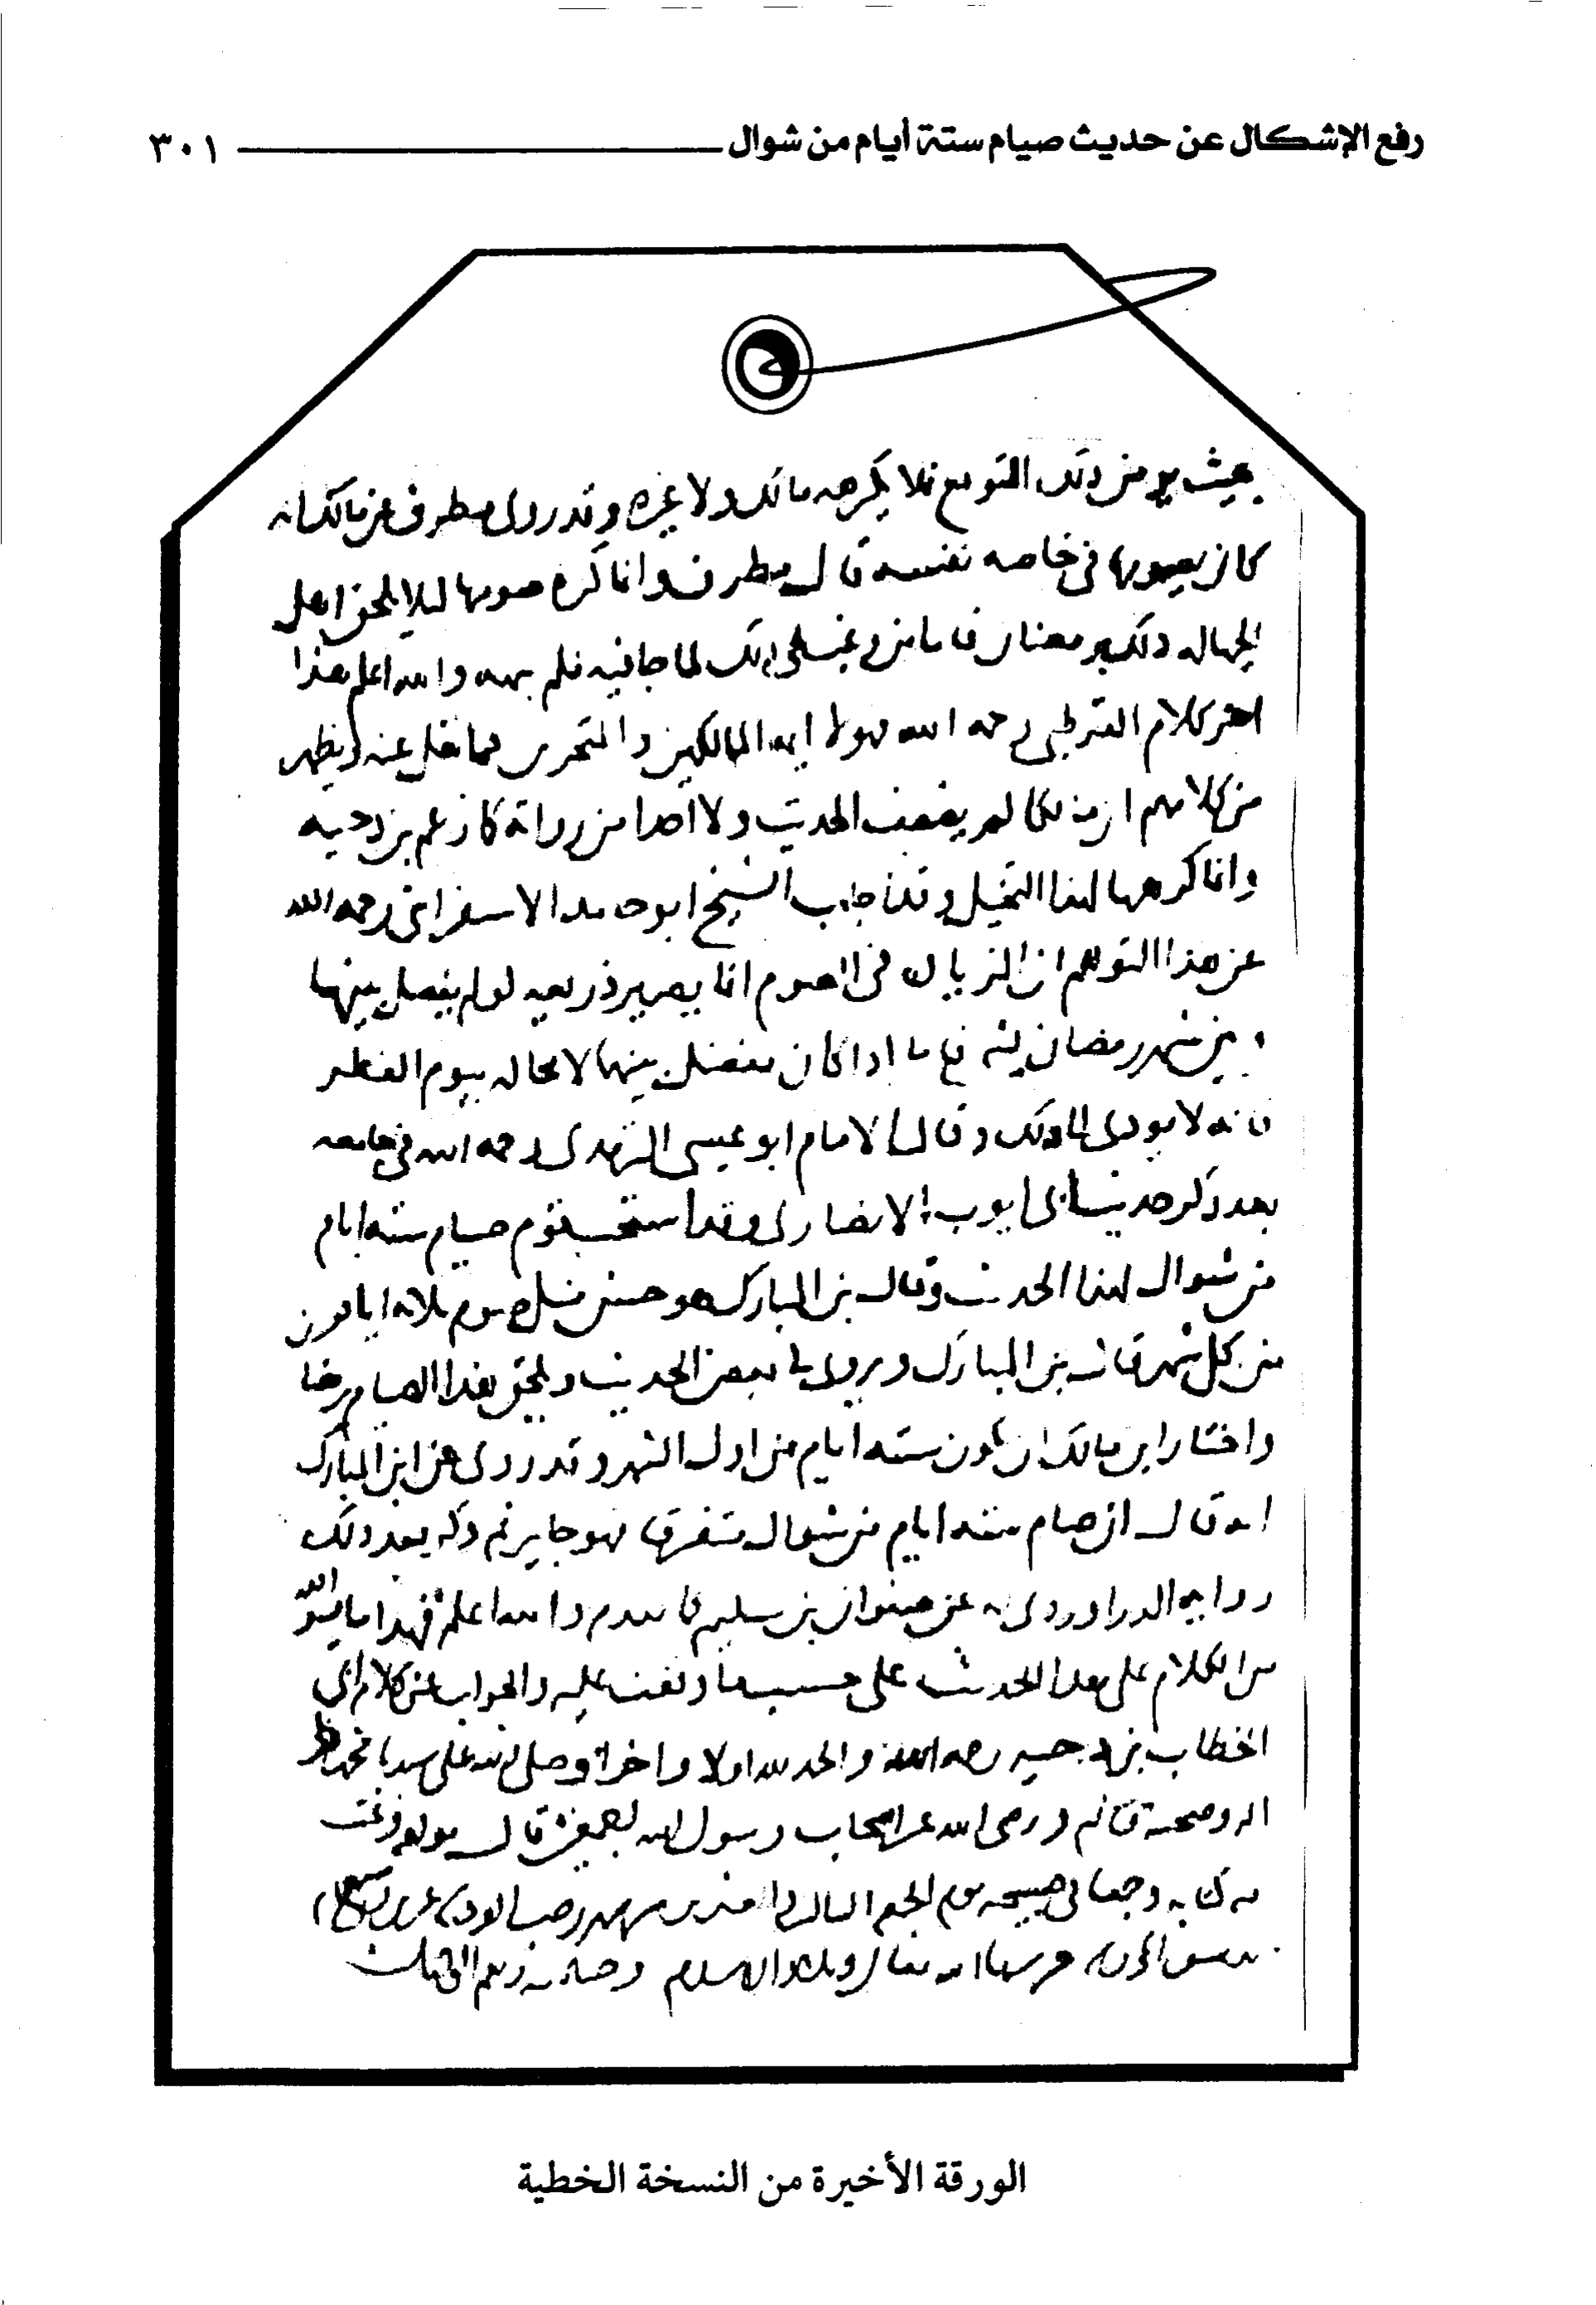 رفع الإشكال عن حديث صيام ستة أيام من شوال ٣٠١
بحيث يومن ذلك التوقع فلا يكرهه مالك ولا غيره وقد روى مطرف عن مالك انه
كان يصومها في خاصه نفسه قال مطرف وانما كره صومها ليلا يلحق اهل
الجهاله ذلك برمضان فاما من رغب في ذلك لما جا فيه فلم ينهه والله اعلم هذا
اخر كلام القرطبي رحمه الله فهولا ايمه المالكين والمتحري مما نقل عنه ويظهر
من كلامهم ان مالكا لم يضعف الحديث ولا احدا من رواته كما زعم بن دحيه
وانما كرهها لهذا التخيل وقد اجاب الشيخ ابو حامد الاسفرايني رحمه الله
عن هذا التوهم ان الزياده في الصوم انما يصير ذريعه لو لم يفصل بينها
وبين شهر رمضان بشي فاما اذا كان يفصل بينهما لا محاله بيوم الفطر
فانه لا يودي الى ذلك وقال الامام ابو عيسى الترمذي رحمه الله في جامعه
بعد ذكر حديث ابي ايوب الانصاري وقد استحب قوم صيام سته ايام
من شوال لهذا الحديث وقال بن المبارك هو حسن مثل صوم ثلاثه ايام
من كل شهر قال بن المبارك ويروى في بعض الحديث ويلحق هذا الصيام برمضان
واختار ابن مالك ان يكون سته ايام من اول الشهر وقد روى عن ابن المبارك
انه قال ان صام سته ايام من شوال متفرقا فهو جايز ثم ذكر بعد ذلك
روايه الدراوردي عن صفوان بن سليم كما تقدم والله اعلم فهذا ما يسر الله
من الكلام على هذا الحديث على حسب ما وقفت عليه والجواب عن كلام ابي
الخطاب بن دحيه رحمه الله والحمد لله اولا واخرا وصلى الله على سيدنا محمد
اله وصحبه ورضي الله عن اصحاب رسول الله اجمعين قال مولفه فرغت
في صبيحه يوم الجمعه شهر رجب
حرسها الله تعالى وبلاد الاسلام
الورقة الأخيرة من النسخة الخطية